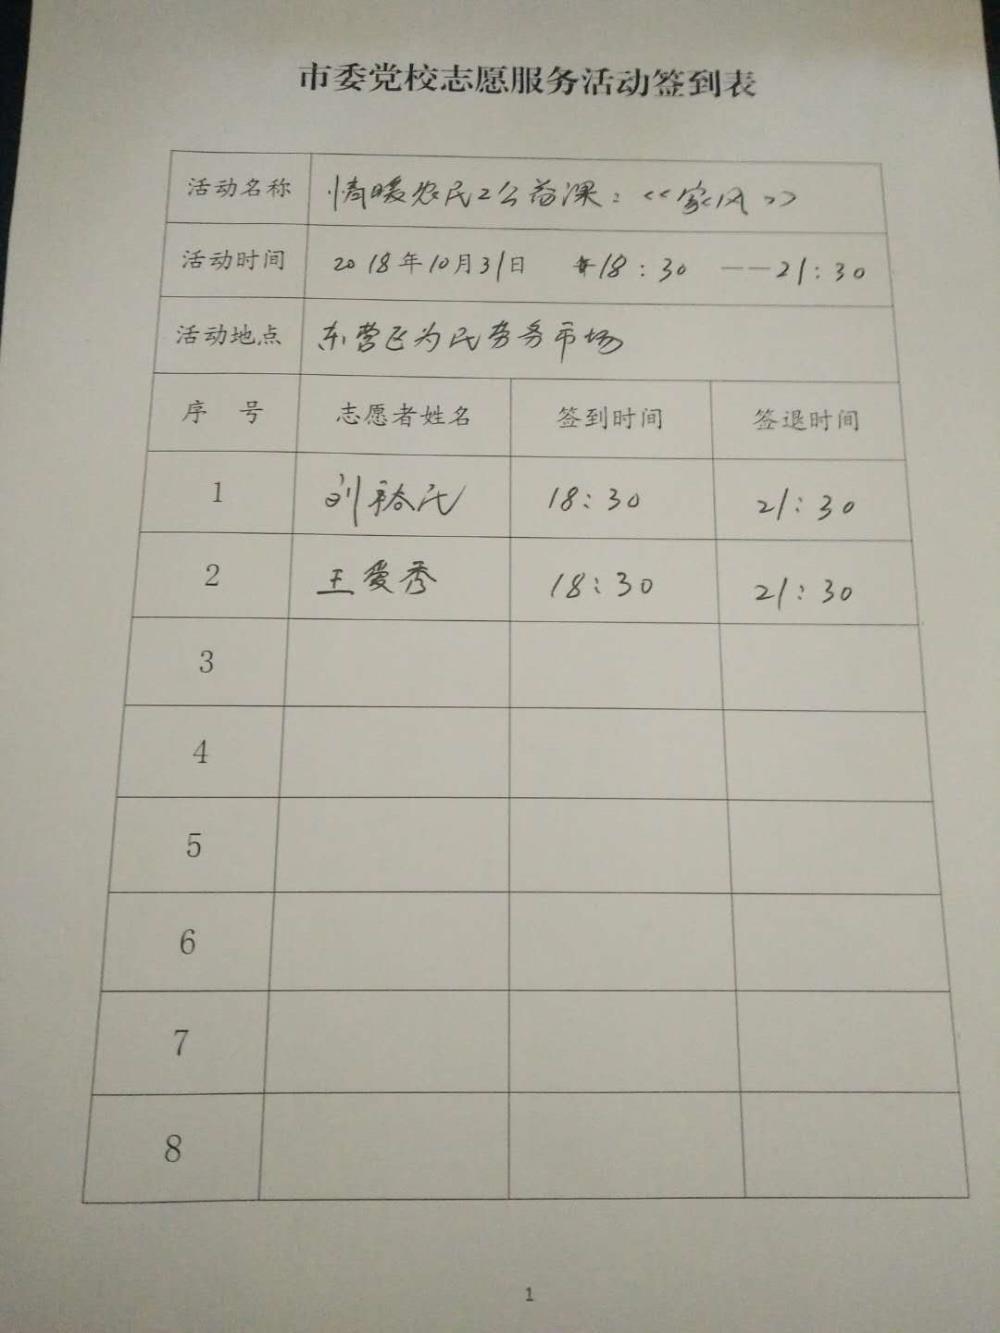 市委党校志愿服务活动签到表
活动名称 情暖农民工公益课:《家风》
活动时间 2018年10月31日 18:30 ——21:30
活动地点 东营区为民劳务市场
序 号 志愿者姓名 签到时间 签退时间
1 刘 18:30 21:30
2 王爱秀 18:30 21:30
3
4
5
6
7
8
1